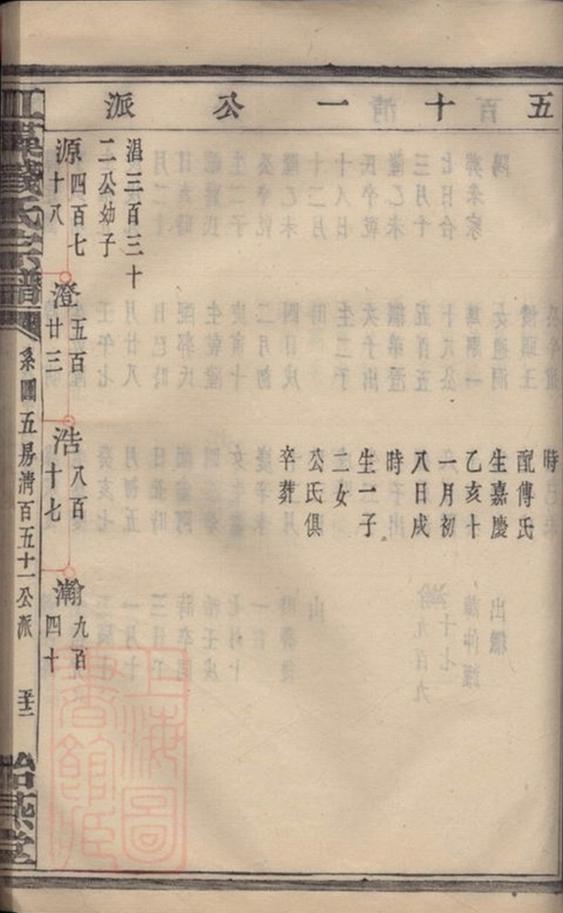 五十一公派
時
配傅氏
生嘉慶
乙亥十
一月初
八日戌
時
生一子
二女
公氏俱
卒葬
淐三百三十
二公幼子
源四百七
十八
澄五百
廿三
浩八百
十七
瀚九百
四十
錢氏宗譜
系圖
五易清百五十一公派
怡燕堂
上海圖
書館藏